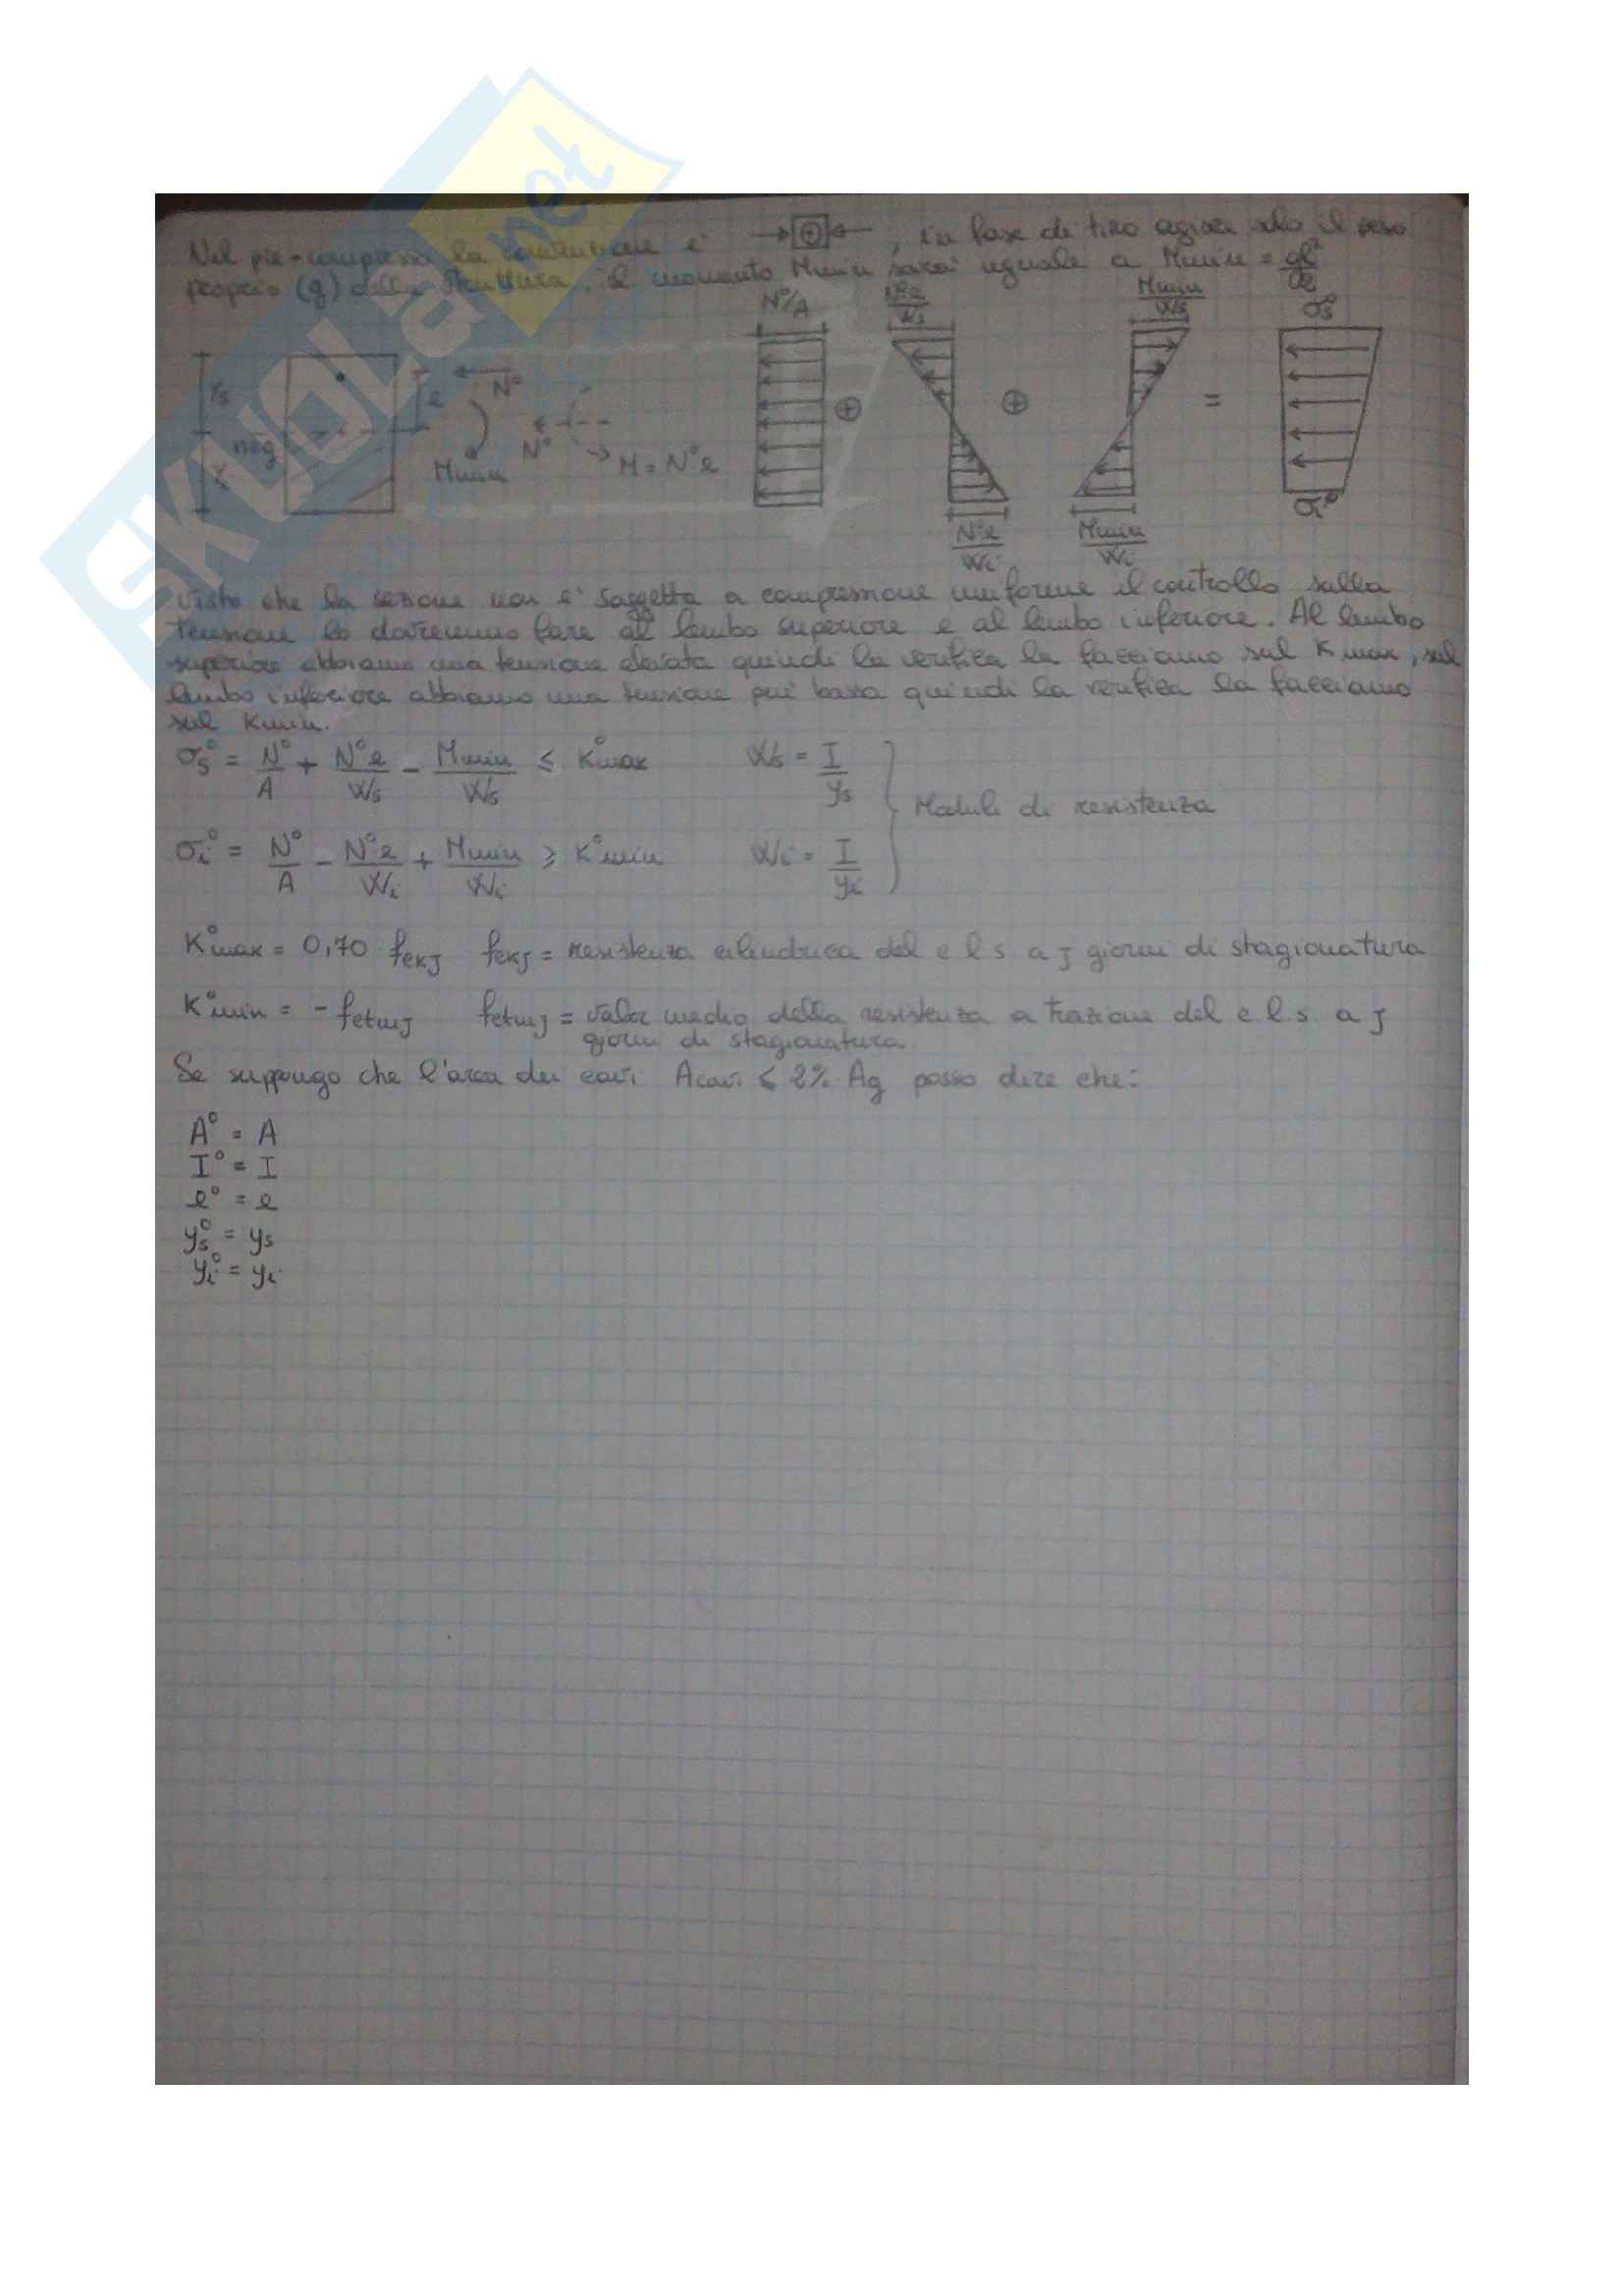 SKUOLA.net
Nel pre-compresso la convenzione è ⊕, in fase di tiro agisce solo il peso
proprio (g) della struttura, il momento Mmin sarà uguale a Mmin = gl²/8
N°/A N°e/Ws Mmin/Ws σs°
ys e N°
nog ⊕ ⊕ =
yi Mmin N° M = N°e
σi°
N°e/Wi Mmin/Wi
Visto che la sezione non è soggetta a compressione uniforme il controllo sulla
tensione lo dovremmo fare al lembo superiore e al lembo inferiore. Al lembo
superiore abbiamo una tensione elevata quindi la verifica la facciamo sul Kmax, sul
lembo inferiore abbiamo una tensione più bassa quindi la verifica la facciamo
sul Kmin.
σs° = N°/A + N°e/Ws - Mmin/Ws ≤ K°max Ws = I/ys
Moduli di resistenza
σi° = N°/A - N°e/Wi + Mmin/Wi ≥ K°min Wi = I/yi
K°max = 0,70 · fckj fckj = resistenza cilindrica del c l s a j giorni di stagionatura
K°min = - fctmj fctmj = valor medio della resistenza a trazione del c.l.s. a j
giorni di stagionatura
Se suppongo che l'area dei cavi Acavi ≤ 2% Ag posso dire che:
A° = A
I° = I
e° = e
ys° = ys
yi° = yi